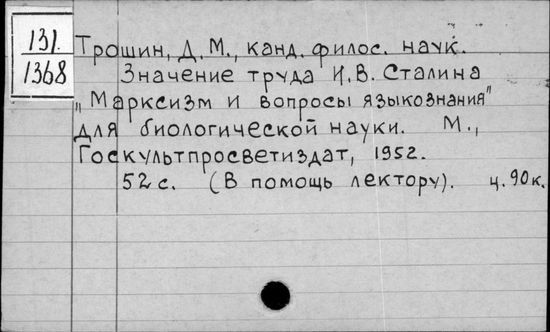 131.
1368
Трошин, Д. М., канд. филос. наук.
Значение труда И. В. Сталина
„Марксизм и вопросы языкознания"
для биологической науки. М.,
Госкультпросветиздат, 1952.
52 с. (В помощь лектору). ц. 90 к.